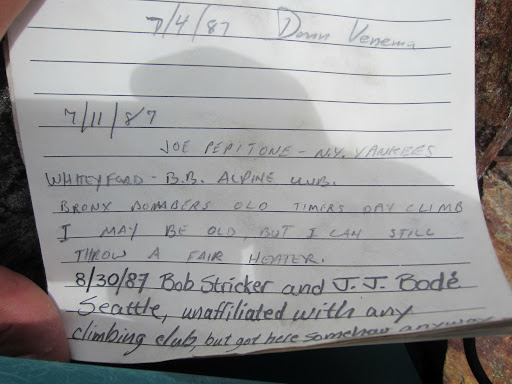 7/4/87 Donn Venema
7/11/87
JOE PEPITONE - N.Y. YANKEES
WHITEY FORD - B.B. ALPINE CLUB.
BRONX BOMBERS OLD TIMERS DAY CLIMB
I MAY BE OLD BUT I CAN STILL
THROW A FAIR HEATER.
8/30/87 Bob Stricker and J.J. Bodé
Seattle, unaffiliated with any
climbing club, but got here somehow anyway